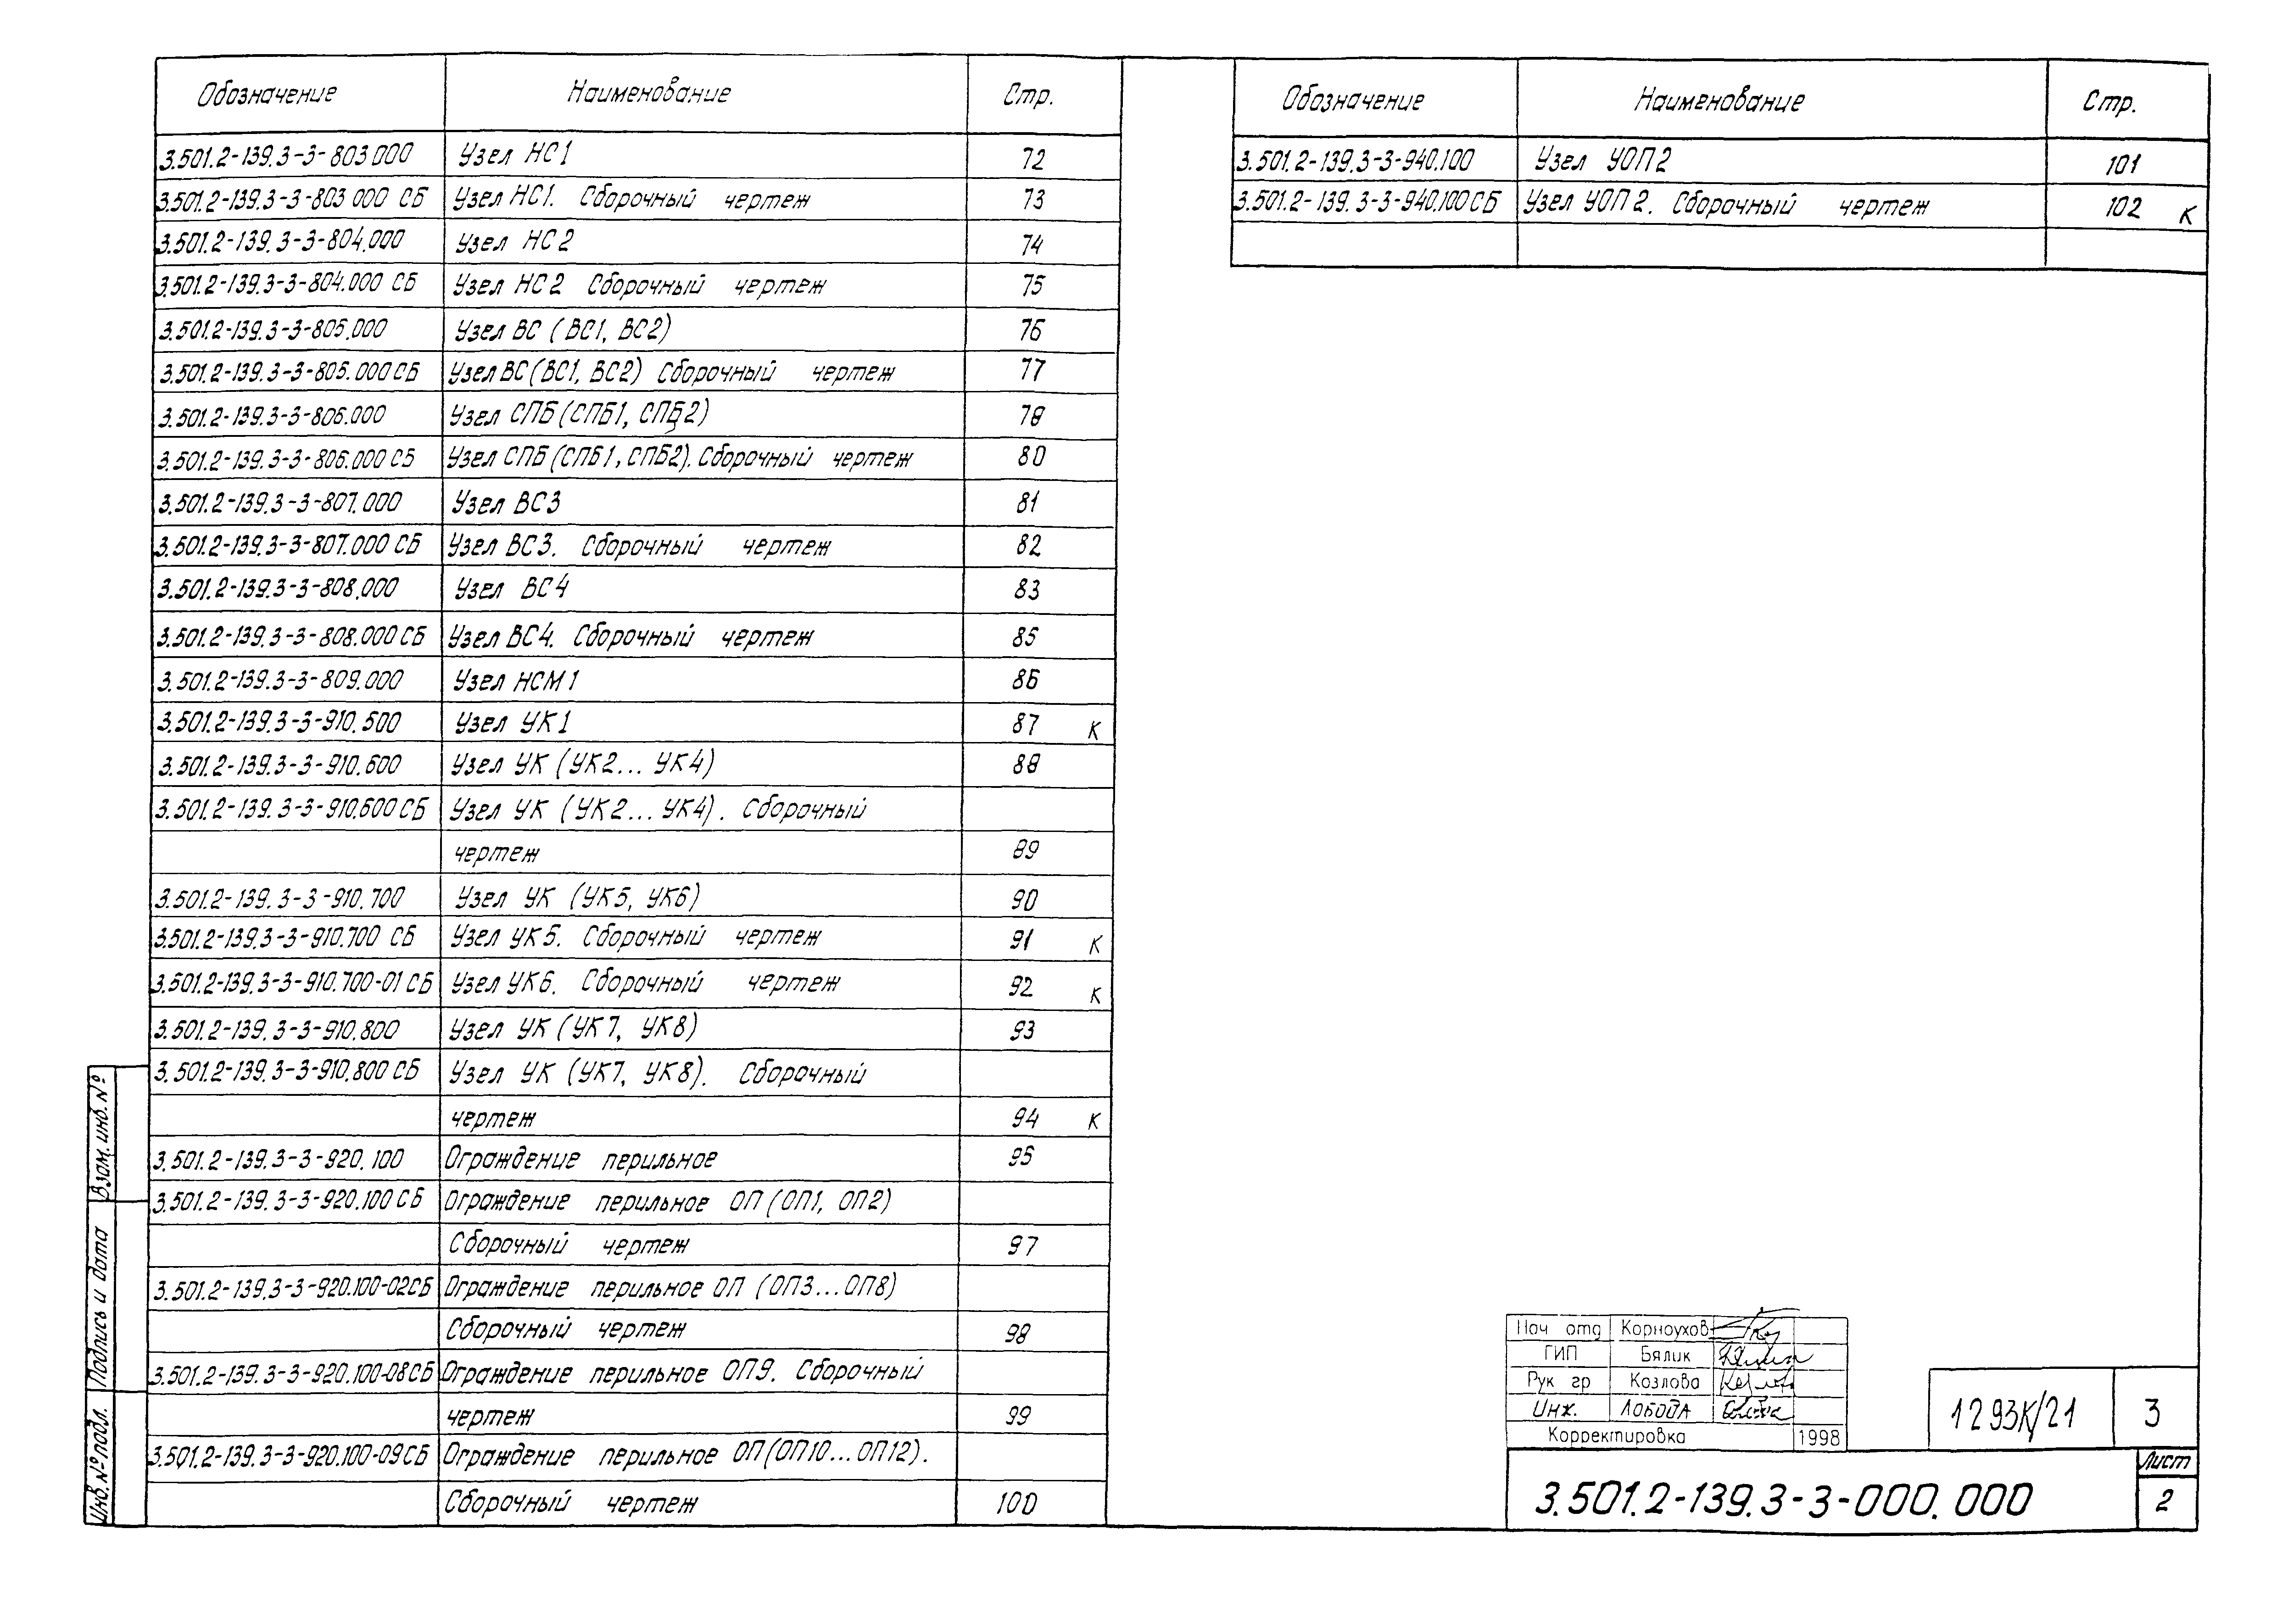 Обозначение Наименование Стр.
3.501.2-139.3-3-803.000 Узел НС1 72
3.501.2-139.3-3-803 000 СБ Узел НС1. Сборочный чертеж 73
3.501.2-139.3-3-804.000 Узел НС2 74
3.501.2-139.3-3-804.000 СБ Узел НС2 Сборочный чертеж 75
3.501.2-139.3-3-805.000 Узел ВС (ВС1, ВС2) 76
3.501.2-139.3-3-805.000 СБ Узел ВС (ВС1, ВС2) Сборочный чертеж 77
3.501.2-139.3-3-806.000 Узел СПБ (СПБ1, СПБ2) 78
3.501.2-139.3-3-806.000 СБ Узел СПБ (СПБ1, СПБ2). Сборочный чертеж 80
3.501.2-139.3-3-807.000 Узел ВС3 81
3.501.2-139.3-3-807.000 СБ Узел ВС3. Сборочный чертеж 82
3.501.2-139.3-3-808.000 Узел ВС4 83
3.501.2-139.3-3-808.000 СБ Узел ВС4. Сборочный чертеж 85
3.501.2-139.3-3-809.000 Узел НСМ1 86
3.501.2-139.3-3-910.500 Узел УК1 87 К
3.501.2-139.3-3-910.600 Узел УК (УК2... УК4) 88
3.501.2-139.3-3-910.600 СБ Узел УК (УК2... УК4). Сборочный
чертеж 89
3.501.2-139.3-3-910.700 Узел УК (УК5, УК6) 90
3.501.2-139.3-3-910.700 СБ Узел УК5. Сборочный чертеж 91 К
3.501.2-139.3-3-910.700-01 СБ Узел УК6. Сборочный чертеж 92 К
3.501.2-139.3-3-910.800 Узел УК (УК7, УК8) 93
3.501.2-139.3-3-910.800 СБ Узел УК (УК7, УК8). Сборочный
чертеж 94 К
3.501.2-139.3-3-920.100 Ограждение перильное 95
3.501.2-139.3-3-920.100 СБ Ограждение перильное ОП (ОП1, ОП2)
Сборочный чертеж 97
3.501.2-139.3-3-920.100-02СБ Ограждение перильное ОП (ОП3...ОП8)
Сборочный чертеж 98
3.501.2-139.3-3-920.100-08СБ Ограждение перильное ОП9. Сборочный
чертеж 99
3.501.2-139.3-3-920.100-09СБ Ограждение перильное ОП(ОП10...ОП12).
Сборочный чертеж 100
Обозначение Наименование Стр.
3.501.2-139.3-3-940.100 Узел УОП2 101
3.501.2-139.3-3-940.100 СБ Узел УОП2. Сборочный чертеж 102 К
Взам. инв. №
Подпись и дата
Инв. № подл.
Нач отд Корноухов
ГИП Бялик
Рук гр Козлова
Инж. ЛОБОДА
Корректировка 1998
1293К/21 3
3.501.2-139.3-3-000.000
Лист
2